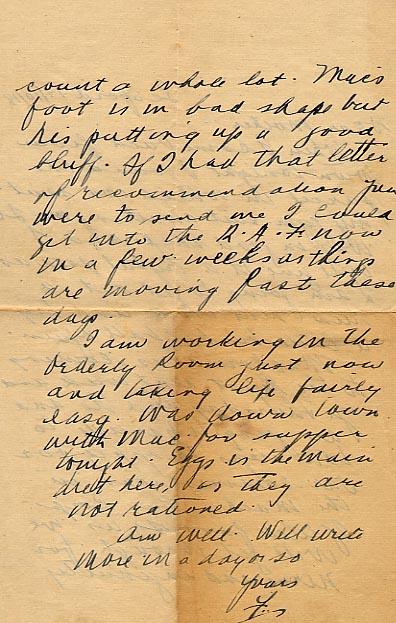 count a whole lot. Mac's
foot is in bad shape but
his putting up a good
bluff. If I had that letter
of recommendation you
were to send me I could
get into the R.A.F. now
in a few weeks as things
are moving fast these
days.
I am working in the
Orderly Room just now
and taking life fairly
easy. Was down town
with Mac for supper
tonight. Eggs is the main
diet here, as they are
not rationed.
Am well. Will write
more in a day or so
Yours